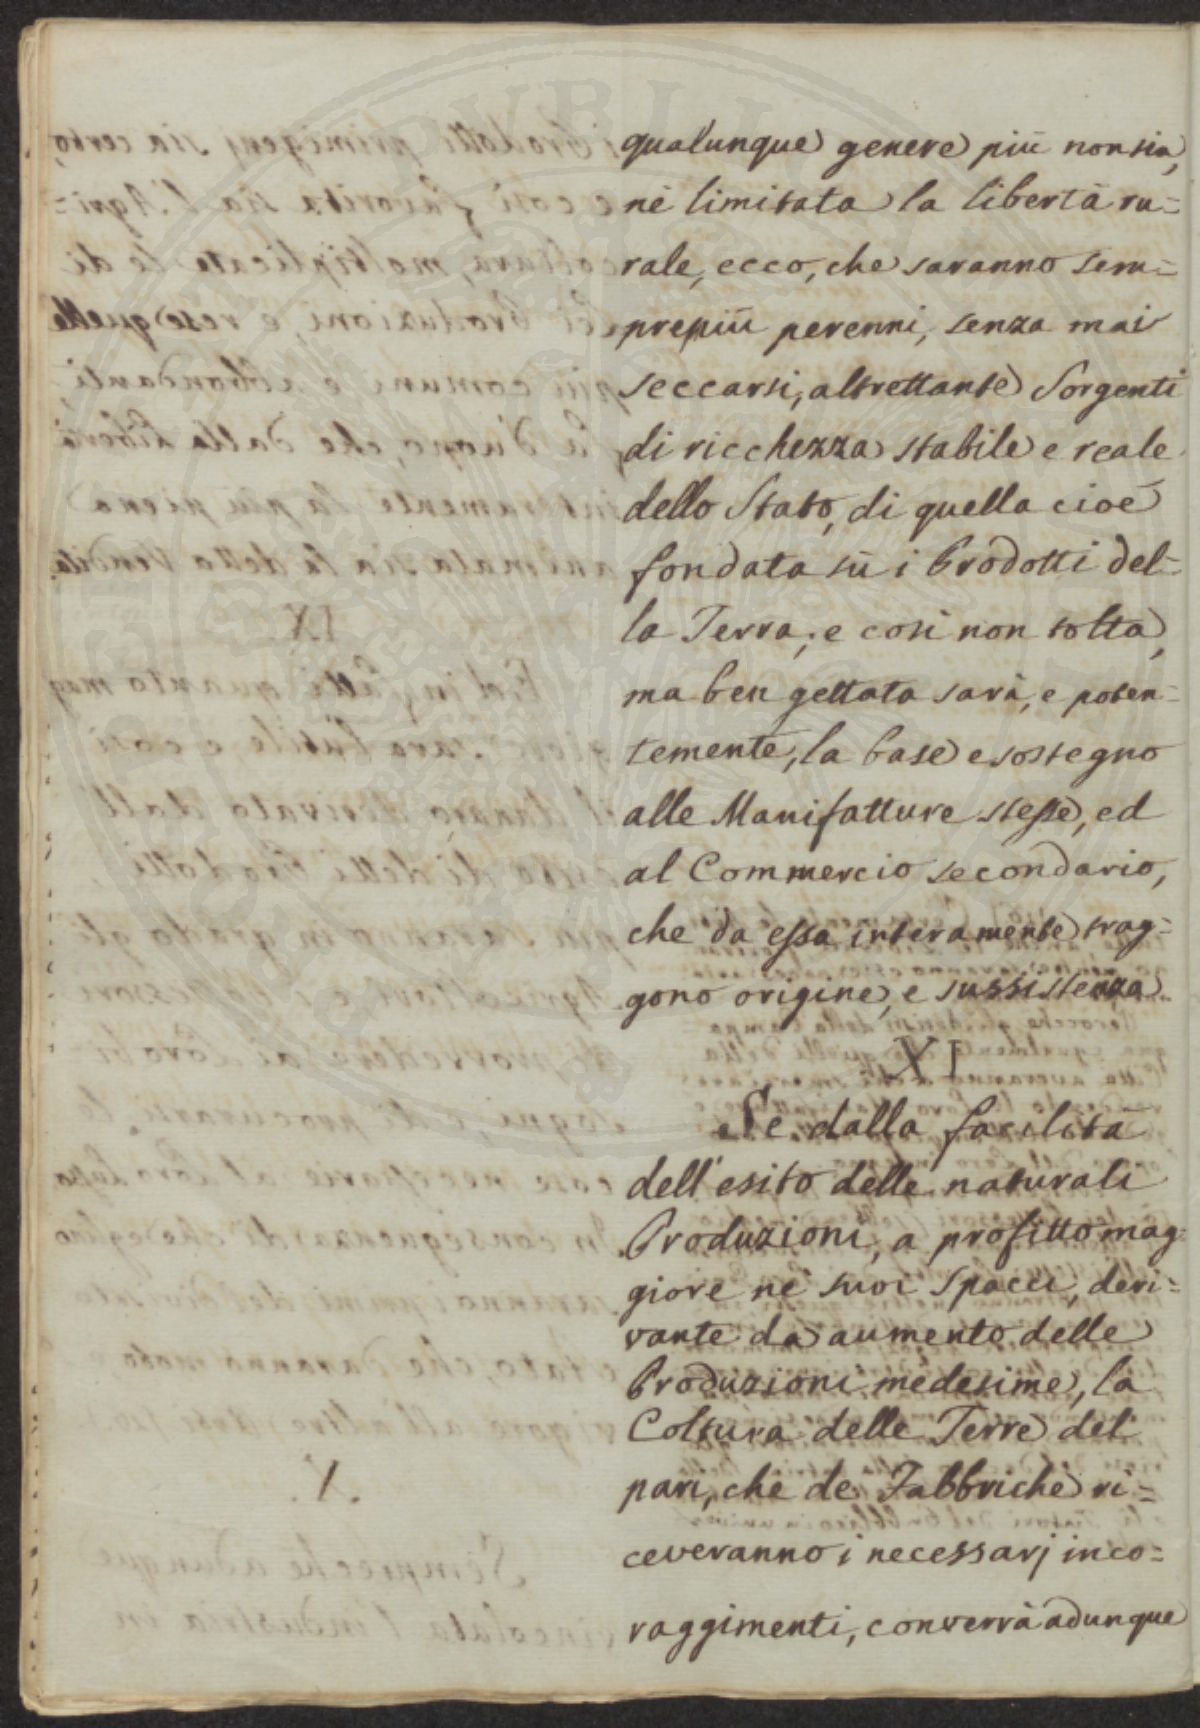 qualunque genere più non sia,
nè limitata la libertà ru=
rale, ecco, che saranno sem=
prepiù perenni, senza mai
seccarsi, altrettante Sorgenti
di ricchezza stabile e reale
dello Stato, di quella cioè
fondata sù i Prodotti del=
la Terra; e così non tolta,
ma ben gettata sarà, e poten=
temente, la base e sostegno
alle Manifatture stesse, ed
al Commercio secondario,
che da essa interamente trag=
gono origine, e sussistenza.
XI
Se dalla facilità
dell'esito delle naturali
Produzioni, a profitto mag=
giore ne' suoi Spacci, deri=
vante da aumento delle
Produzioni medesime, la
Coltura delle Terre del
pari, che de Fabbriche ri=
ceveranno i necessarj inco=
raggimenti, converrà adunque